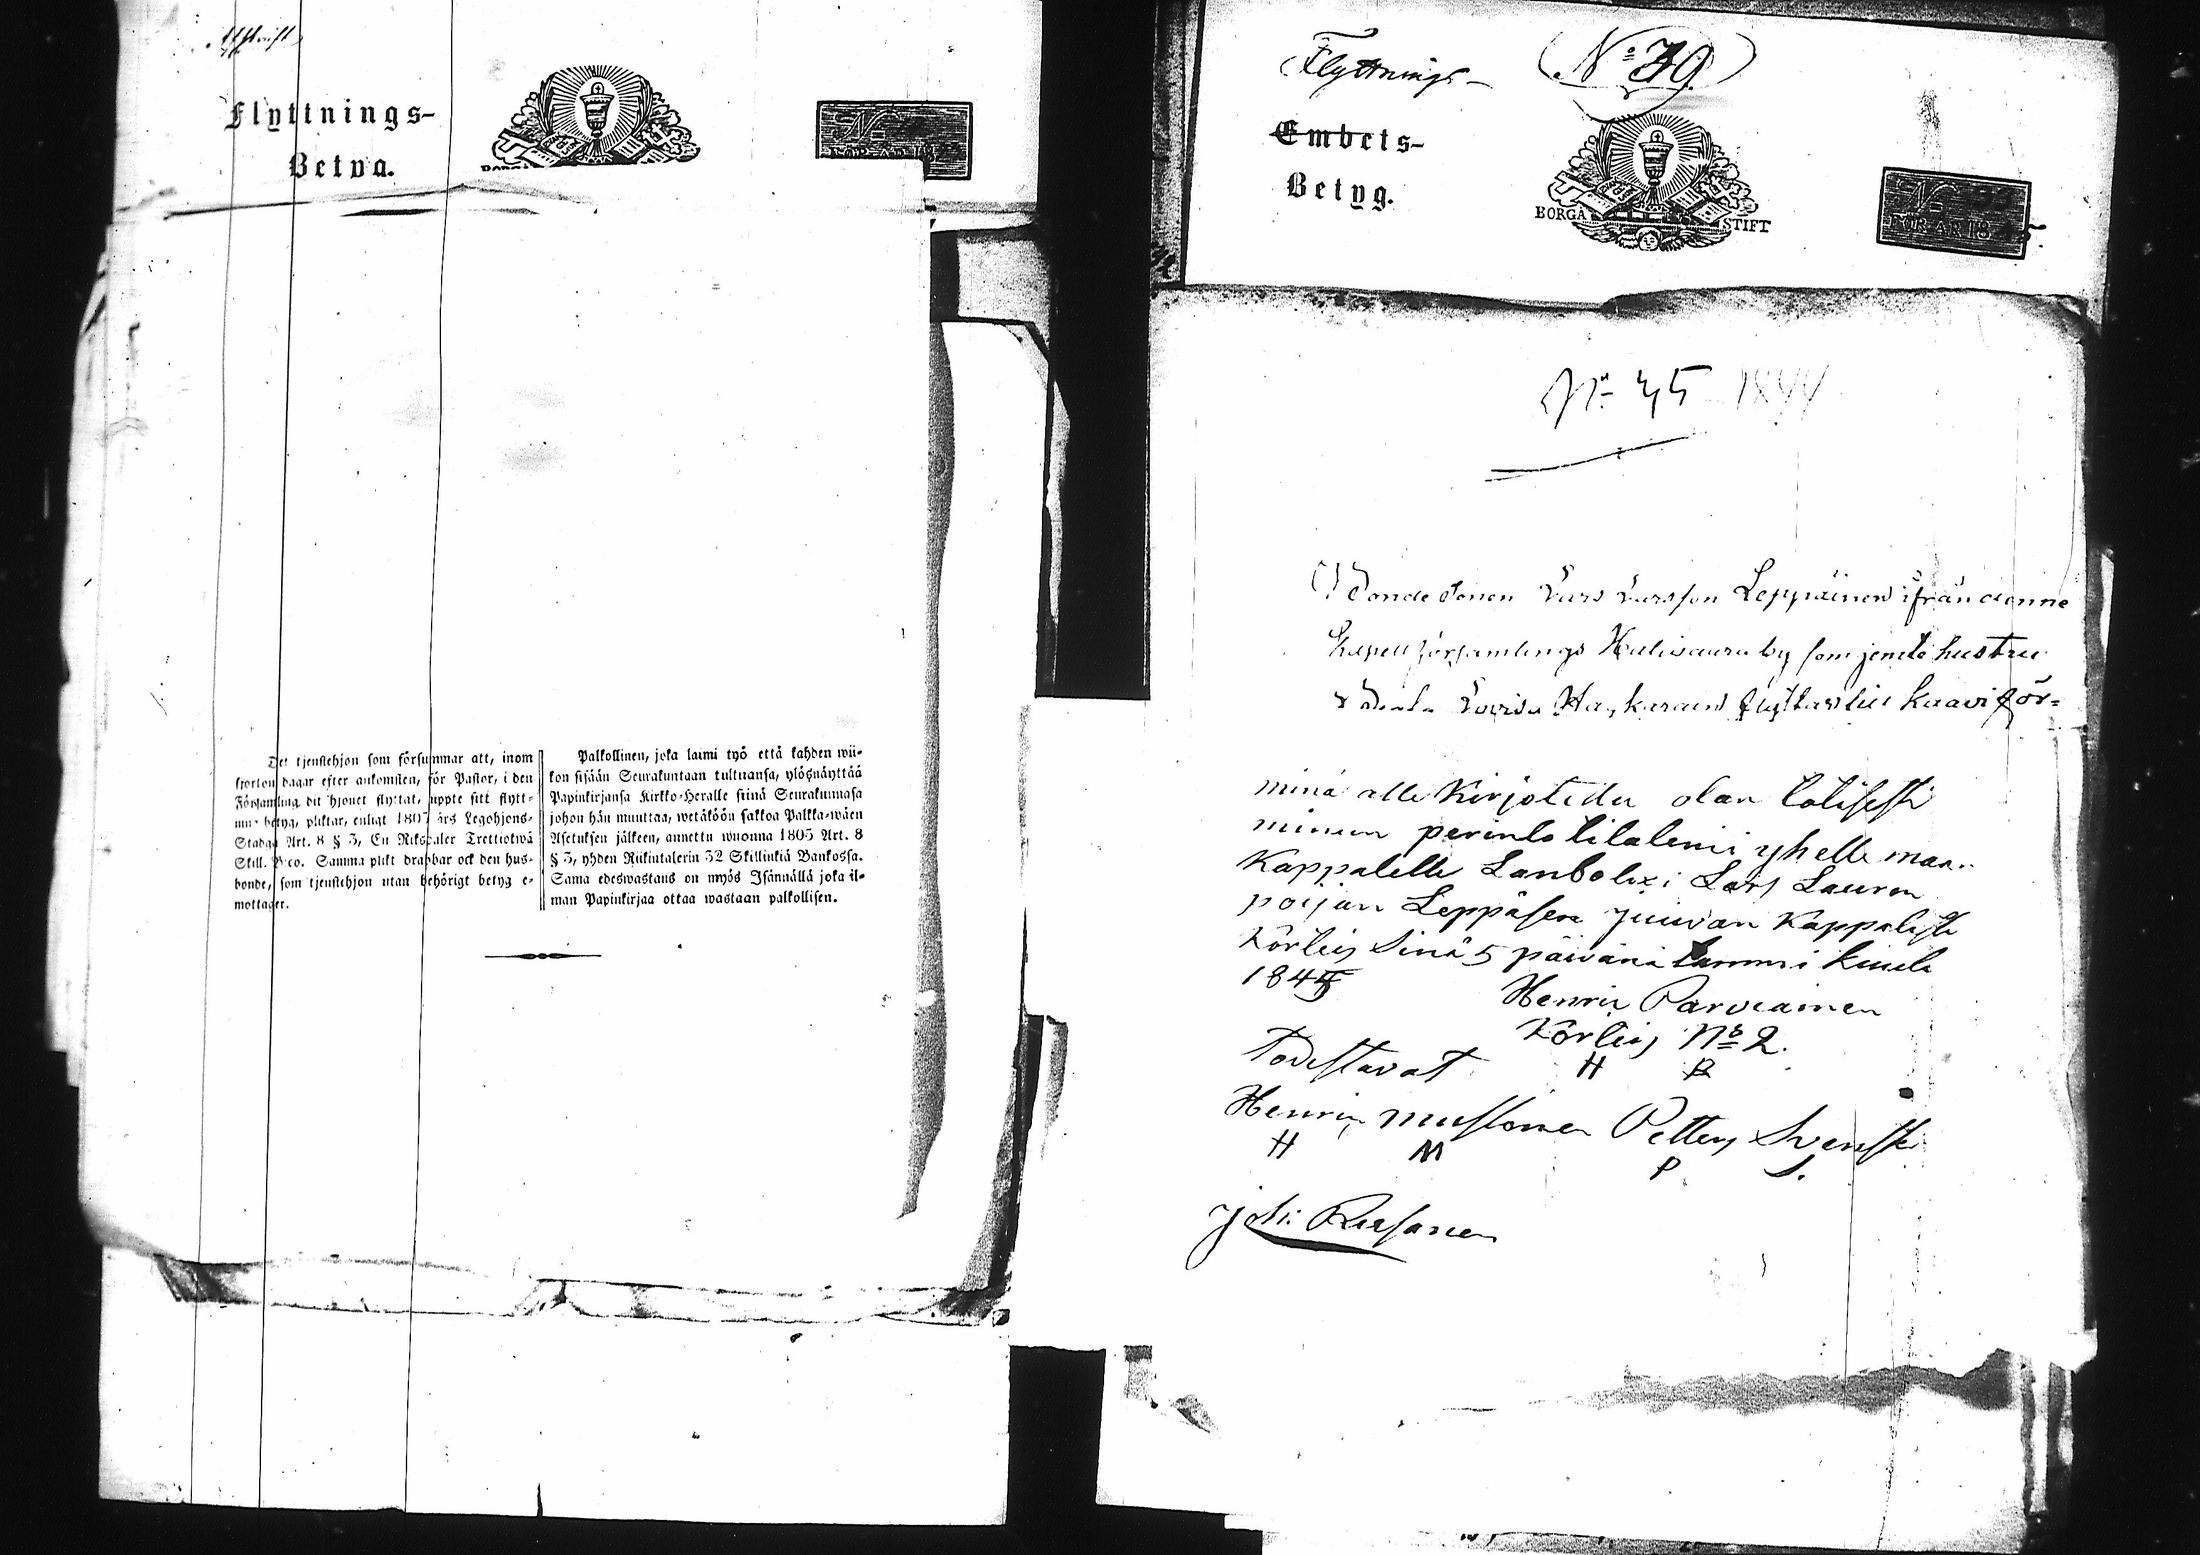 Afskrift
Flyttnings-
Betyg.
Det tjenstehjon som försummar att, inom
fjorton dagar efter ankomsten, för Pastor, i den
Församling dit hjonet flyttat, uppte sitt flytt-
betyg, pliktar, enligt 1805 års Legohjons-
Stadga Art. 8 § 3, En Riksdaler Trettiotwå
Skill. B:co. Samma plikt drabbar ock den hus-
bonde, som tjenstehjon utan behörigt betyg e-
mottager.
Palkollinen, joka laimi työ että kahden wii-
kon sisään Seurakuntaan tultuansa, ylösnäyttää
Papinkirjansa Kirkko-Heralle siinä Seurakunnasa
johon hän muuttaa, wetäköön sakkoa Palkka-wäen
Asetuksen jälkeen, annettu wuonna 1805 Art. 8
§ 3, yhden Riikintalerin 32 Skillinkiä Bankossa.
Sama edeswastaus on myös Isännällä joka il-
man Papinkirjaa ottaa wastaan palkollisen.
Flyttnings-
No 39
Embets-
Betyg.
BORGÅ STIFT
No
FÖR ÅR 18 5.
No 45 1844
Bondesonen Lars Larsson Leppäinen ifrån denne
Kapellförsamlings by som jemte hustru
Lovisa flyttar till Kaavi för-
minä alle Kirjotettu olan
minun perinto tilaleni yhelle maan
Kappalelle Lars Lauron
poijan Leppäsen Juuvan Kappalista
Sinä 5 päivänä tammi kuula
1845
Henric Parviainen
No 2.
H P
todistavat
Henric Mustonen Petter Svensk
H M P S.